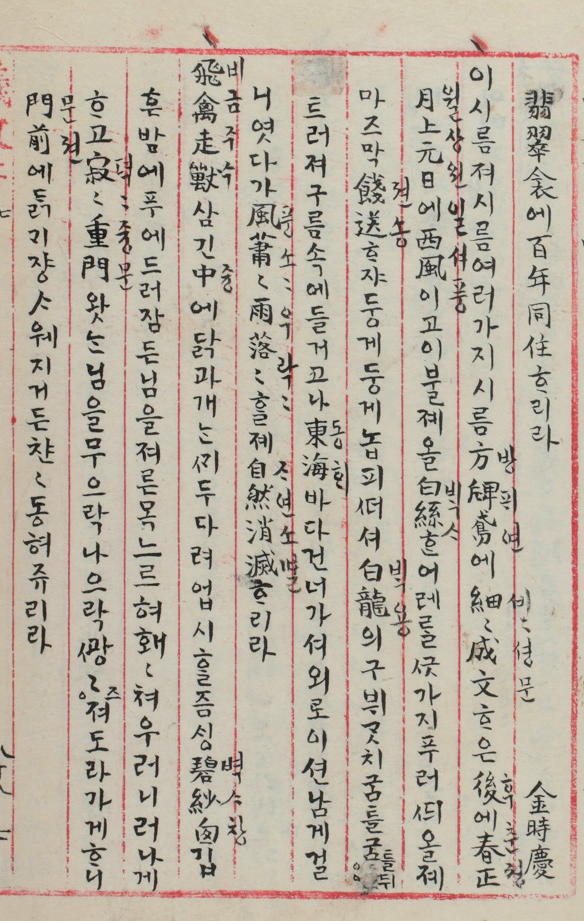 翡翠衾에百年同住ᄒᆞ리라 金時慶
방패연 세〻셩문 후 춘졍
이시름져시름여러가지시름方牌鳶에細〻成文ᄒᆞ은後에春正
월상원일 셔풍 ᄇᆡᆨᄉᆞ
月上元日에西風이고이불졔올白絲ᄒᆞᆫ어레를ᄭᅳᆺ가지푸러ᄯᅴ올졔
젼송 ᄇᆡᆨ용
마즈막餞送ᄒᆞ쟈둥게둥게놉피ᄯᅥ셔白龍의구븨ᄀᆞᆺ치굼틀굼틀뒤
동ᄒᆡ
트러져구름속에들거고나東海바다건너가셔외로이션남게걸
풍소〻우락〻 ᄌᆞ연소멸
니엿다가風蕭〻雨落〻ᄒᆞᆯ졔自然消滅ᄒᆞ리라
비금주수 즁 벽ᄉᆞ창
飛禽走獸삼긴中에닭과개ᄂᆞᆫᄭᆡ두다려업시ᄒᆞᆯ즘싱碧紗窓깁
흔밤에푸에드러잠든님을져른목느르혀홰〻쳐우러니러나게
젹〻즁문
ᄒᆞ고寂〻重門왓ᄂᆞᆫ님을무으락나으락ᄭᅪᆼ〻즈져도라가게ᄒᆞ니
문젼
門前에닭기쟝ᄉᆞ웨지거든챤〻동혀쥬리라